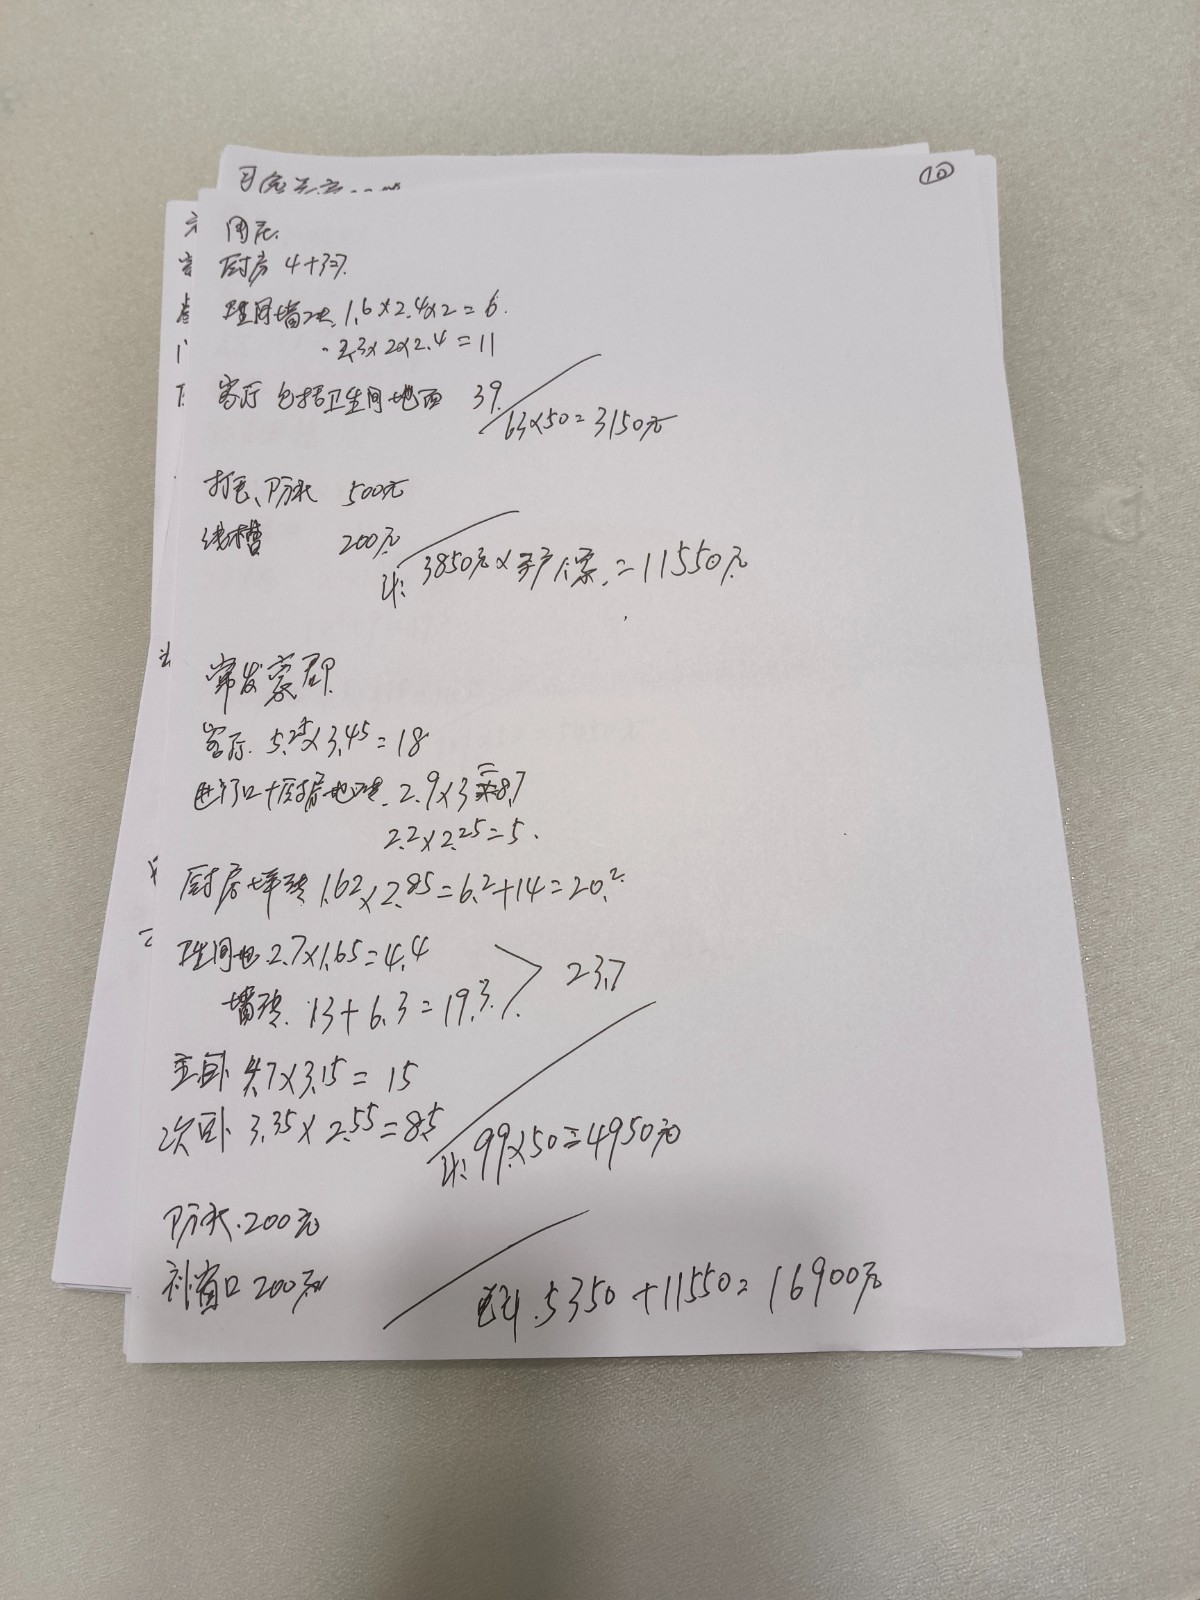 ⑩
周庄.
厨房 4+3=7.
卫生间墙砖 1.6×2.4×2=6.
2.3×2×2.4=11
客厅 包括卫生间地面 39.
63×50=3150元
打毛、防水 500元
线槽 200元
计: 3850元× =11550元
常发豪郡
客厅. 5.25×3.45=18
进门口+厨房地砖. 2.9×3=8.7
2.2×2.25=5.
厨房墙砖 1.62×2.85=6.2+14=20.2
卫生间地 2.7×1.65=4.4
墙砖. 13+6.3=19.3.
23.7
主卧 4.7×3.15=15
次卧 3.35×2.55=8.5
计: 99×50=4950元
防水.200元
补窗口 200元
5350+11550=16900元